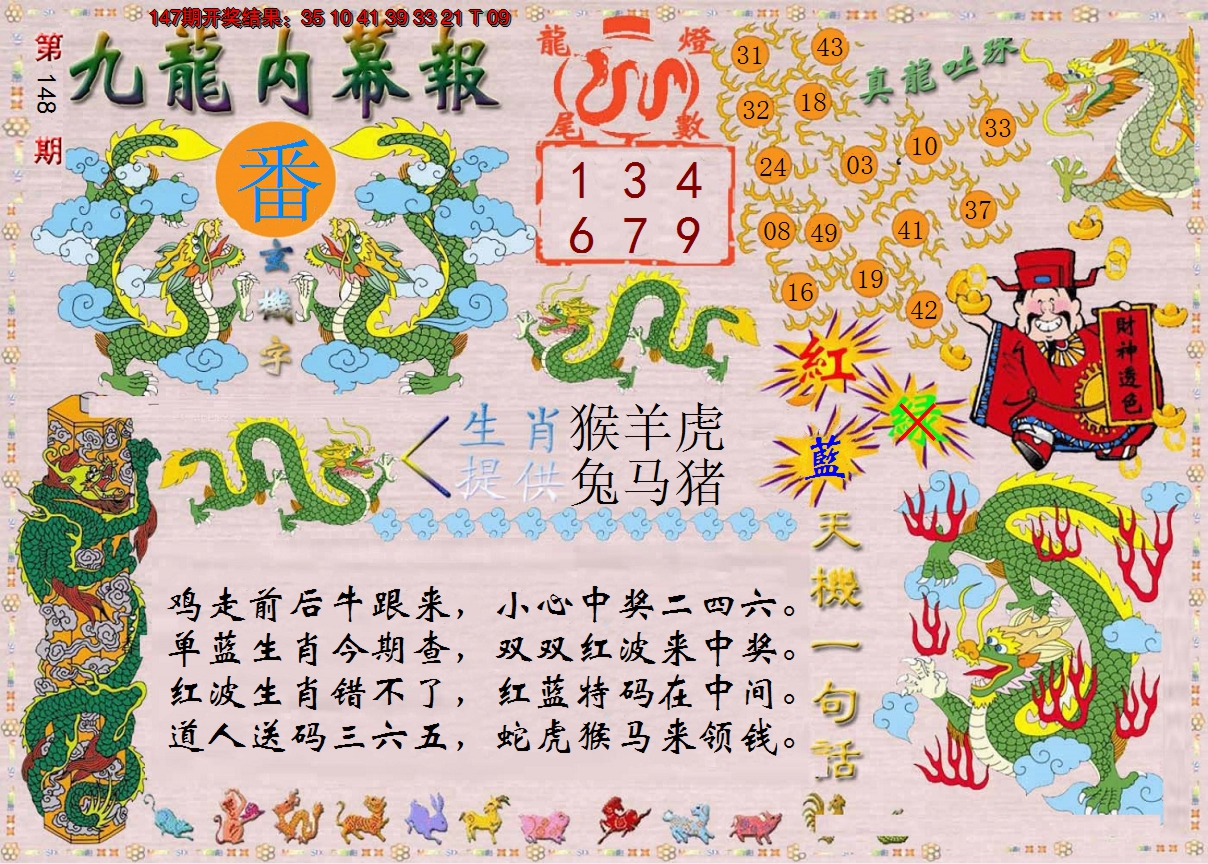 147期开奖结果：35 10 41 39 33 21 T 09
第148期
九龍内幕報
番
玄機字
龍燈
尾數
1 3 4
6 7 9
真龍吐珠
31 43
32 18
10 33
24 03
37
08 49 41
19
16 42
財神透色
紅
绿
藍
生肖 猴羊虎
提供 兔马猪
天機一句话
鸡走前后牛跟来，小心中奖二四六。
单蓝生肖今期查，双双红波来中奖。
红波生肖错不了，红蓝特码在中间。
道人送码三六五，蛇虎猴马来领钱。